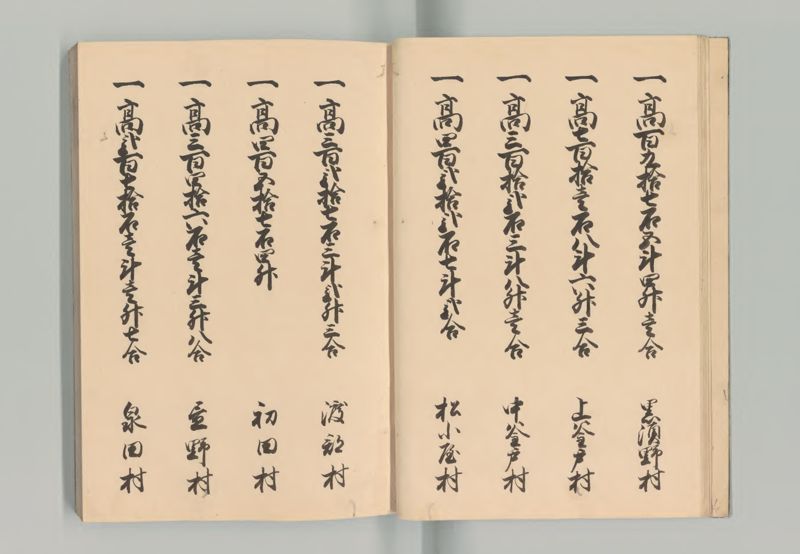 一高百九拾七石五斗四升壱合 黒須野村
一高七百拾壱石八斗六升三合 上釜戸村
一高三百拾弐石三斗八升壱合 中釜戸村
一高四百弐拾弐石七斗弐合 松小屋村
一高三百弐拾七石三斗弐升三合 渡部村
一高四百五拾七石四升 初田村
一高三百四拾六石壱斗三升八合 野村
一高弐百七拾石壱斗壱升七合 泉田村